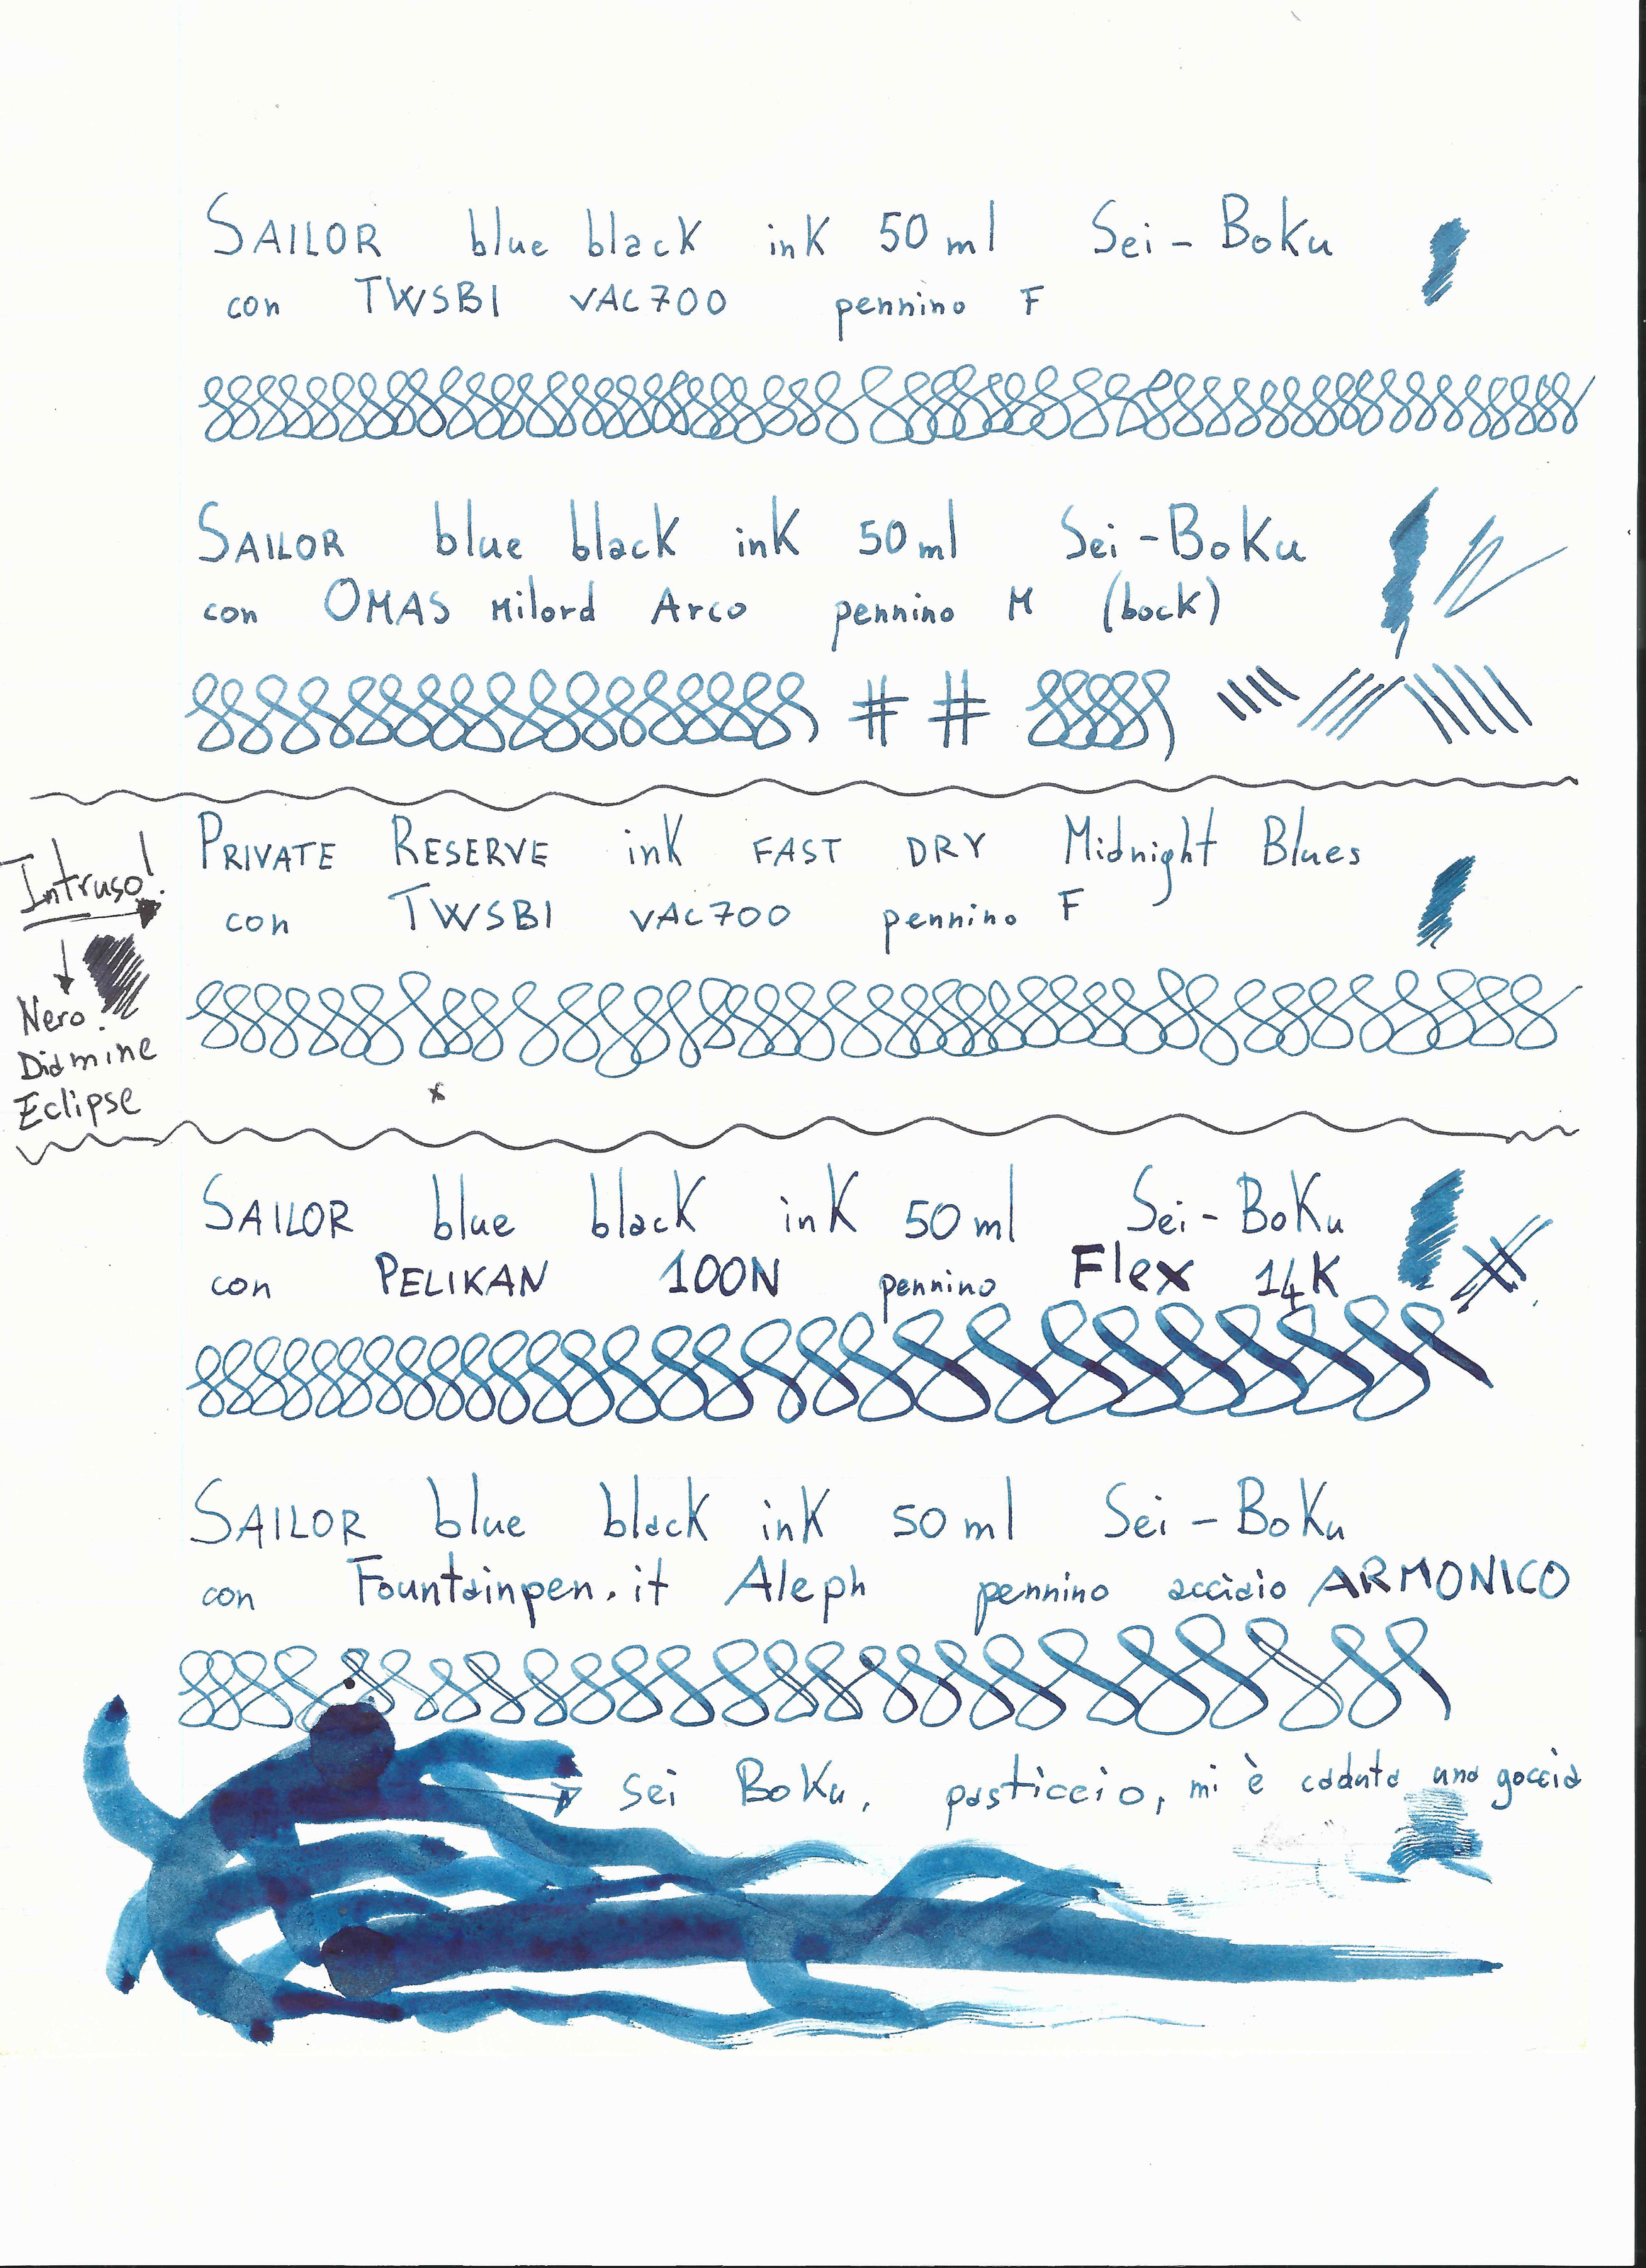 SAILOR blue black ink 50 ml Sei-Boku
con TWSBI VAC700 pennino F
SAILOR blue black ink 50 ml Sei-Boku
con OMAS Milord Arco pennino M (bock)
PRIVATE RESERVE ink FAST DRY Midnight Blues
con TWSBI VAC700 pennino F
Intruso!
Nero:
Diamine
Eclipse
x
SAILOR blue black ink 50 ml Sei-Boku
con PELIKAN 100N pennino Flex 14K
SAILOR blue black ink 50 ml Sei-Boku
con Fountainpen.it Aleph pennino acciaio ARMONICO
Sei Boku, pasticcio, mi è caduta una goccia